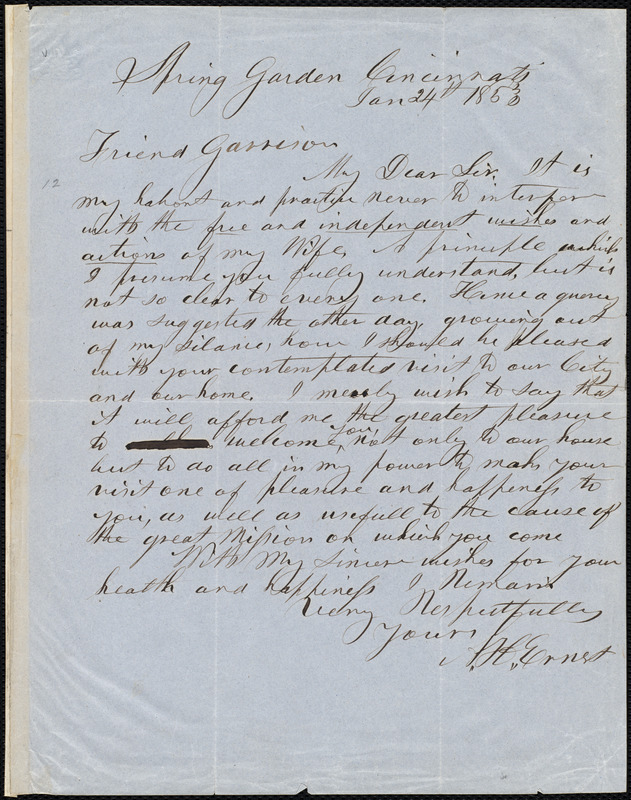 Spring Garden Cincinnati
Jan 24th 1853
Friend Garrison
My Dear Sir, It is
12
my habit and practice never to interfer
with the free and independent wishes and
actions of my Wife, A principle which
I presume you fully understand, but is
not so clear to every one. Hence a query
was suggested the other day, growing out
of my silance, how I should be pleased
with your contemplated visit to our City
and our home. I merely wish to say that
it will afford me the greatest pleasure
to welcome you, not only to our house
but to do all in my power to make your
visit one of pleasure and happiness to
you, as well as usefull to the cause of
the great Mission on which you come
With my sincere wishes for your
health and happiness I Remain
Very Respectfully
Yours
A. H. Ernst